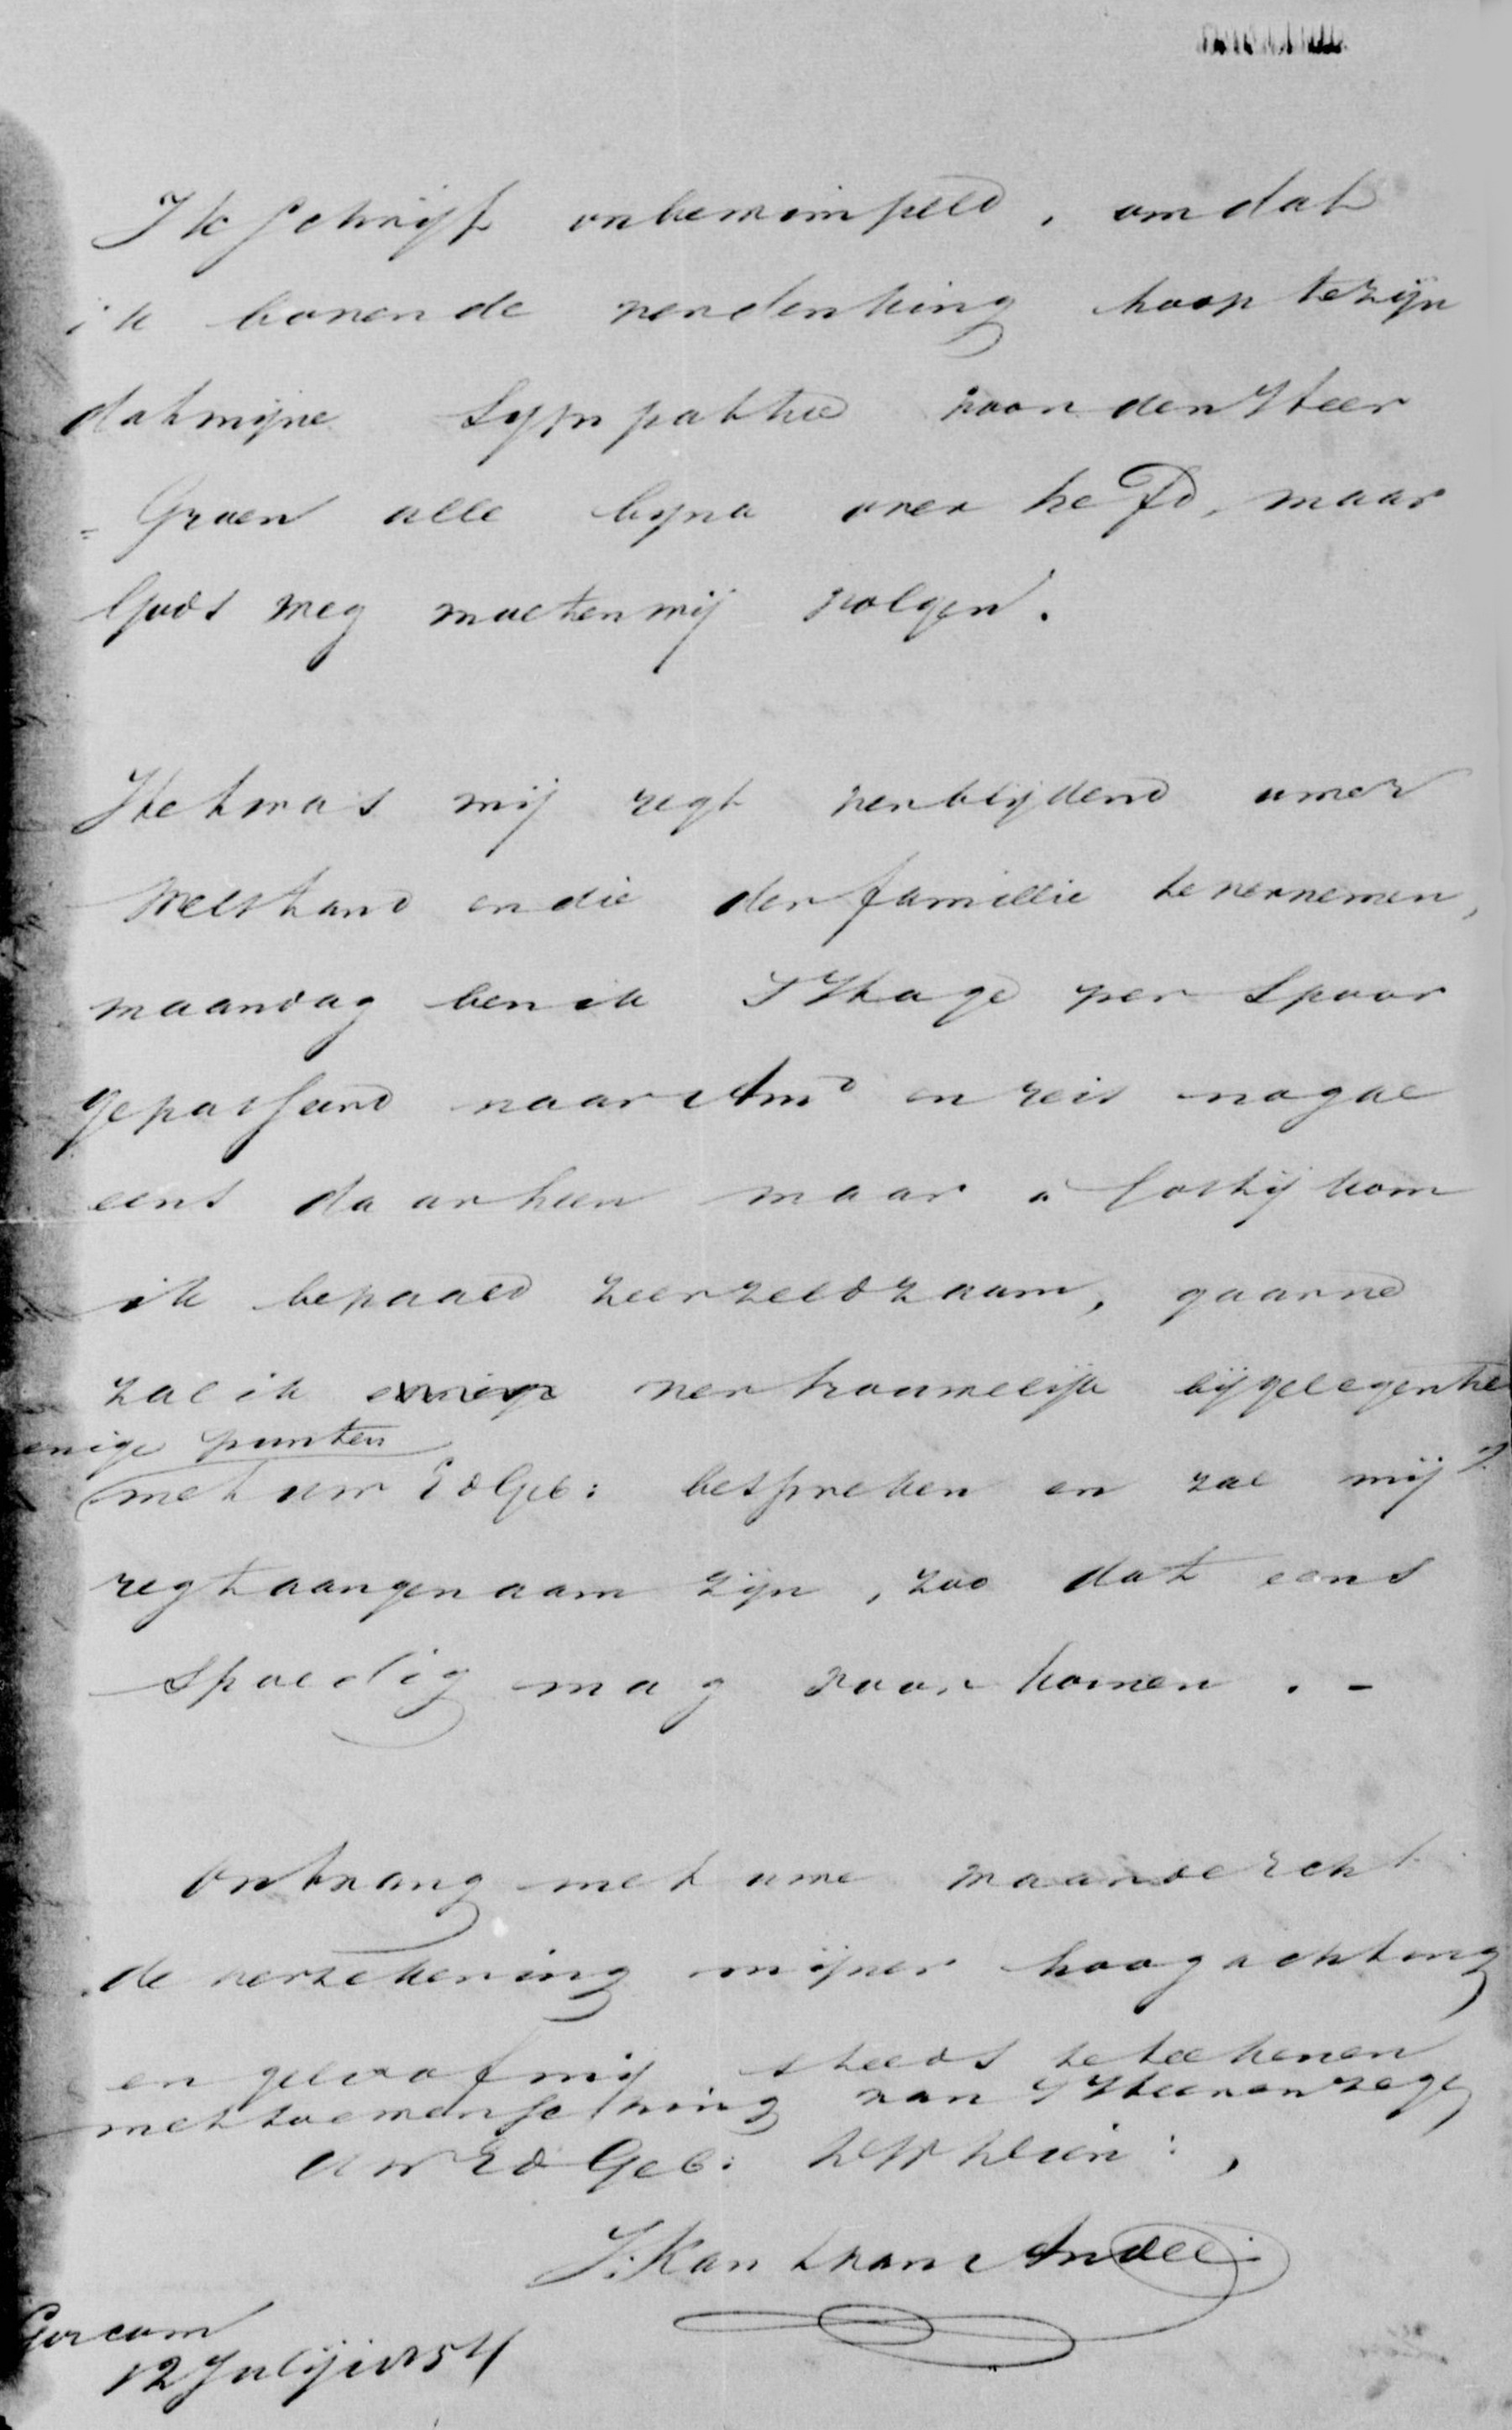 Ik schrijf onbewimpeld, omdat
ik boven de verdenking hoop te zijn
dat mijne Sympathie voor den Heer
Groen alle bijna over heeft, maar
Gods weg moeten wij volgen.
Het was mij regt verblijdend uwer
Welstand en die der famillie te vernemen,
maandag ben ik SHage per Spoor
gepasseerd naar Amd en reis nog al
eens daarheen maar à Costij kom
ik bepaald zeer zeldzaam, gaarne
zal ik vertrouwelijk bij gelegenhe
enige punten
met uw EdGeb: bespreken en zal mij
regt aangenaam zijn, zoo dat eens
spoedig mag voorkomen. -
Ontvang met uwe waarde Echt
de verzekering mijner hoogachting
en geloof mij steeds te teekenen
met toewensching van SHeeren zege
UwEdGeb: DW Dien:,
J. Kan van Andel
Gorcum
12 Julij 1854